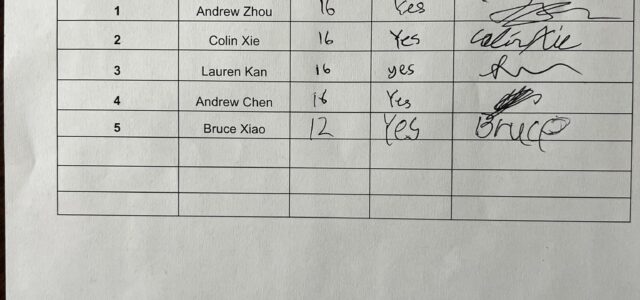 1 Andrew Zhou 16 Yes
2 Colin Xie 16 Yes Colin Xie
3 Lauren Kan 16 yes
4 Andrew Chen 16 Yes
5 Bruce Xiao 12 Yes Bruce